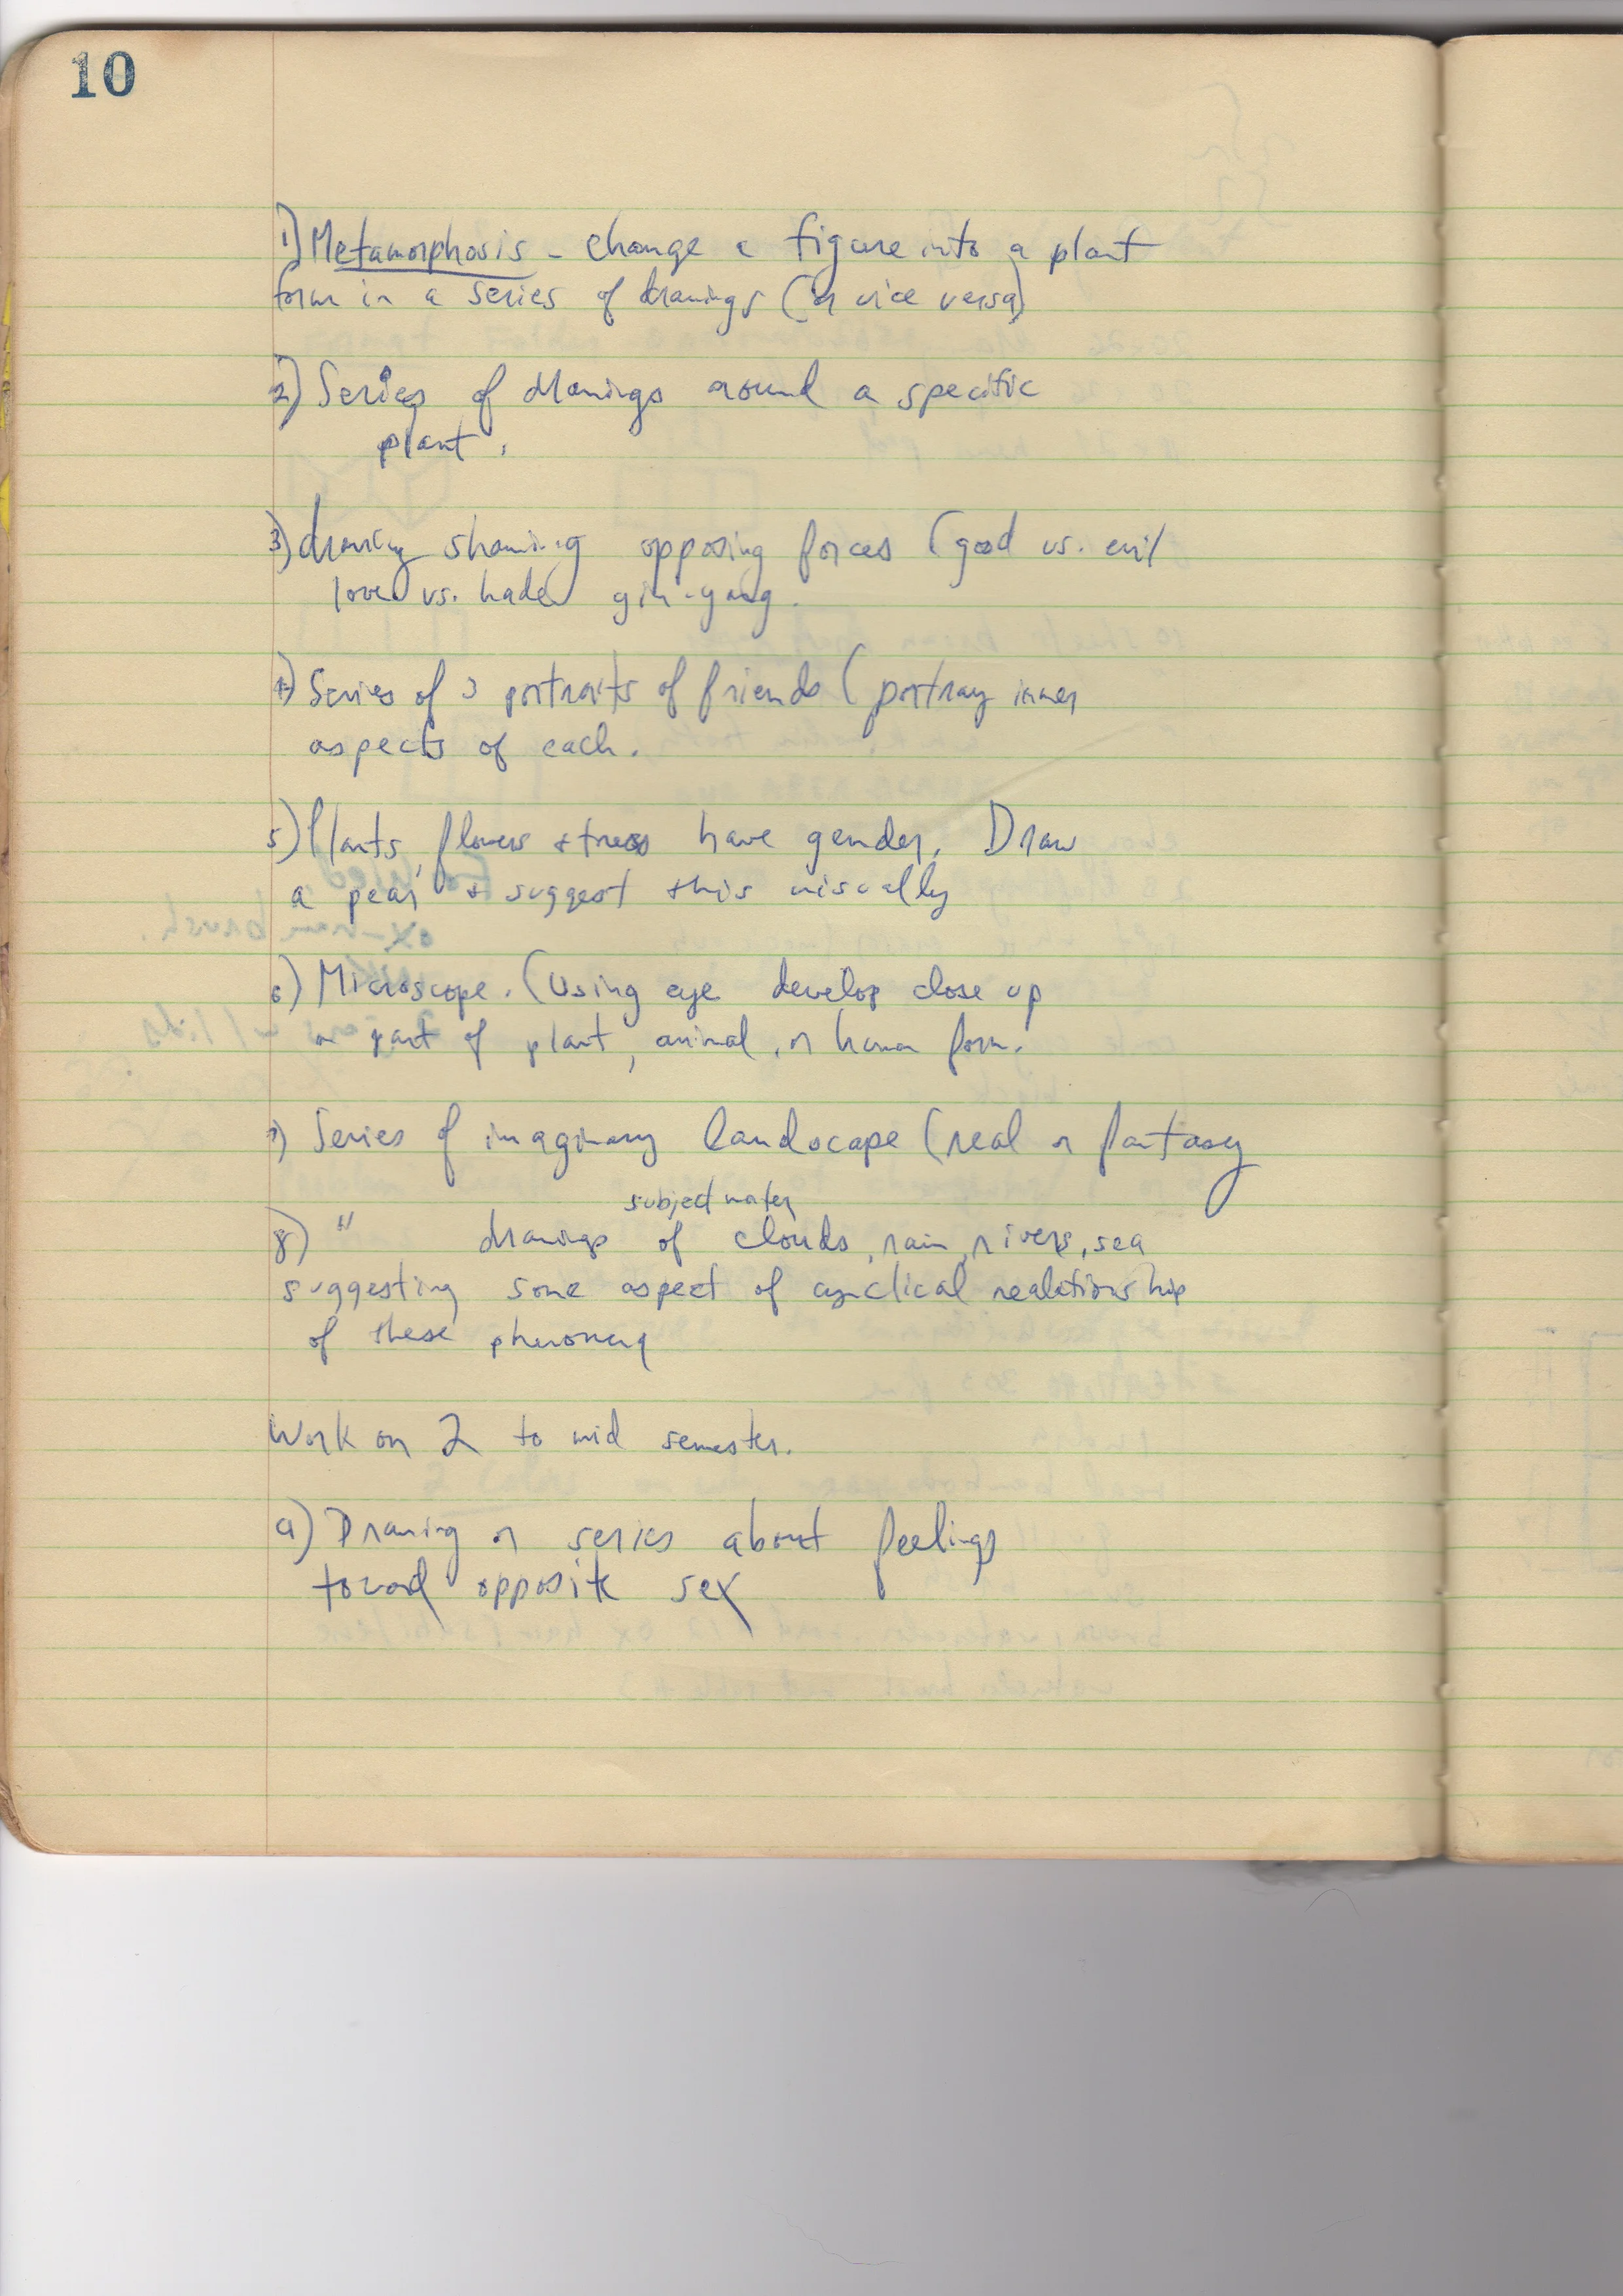 10
1) Metamorphosis - change a figure into a plant
form in a series of drawings (or vice versa)
2) Series of drawings around a specific
plant.
3) drawing showing opposing forces (good vs. evil
love vs. hade yin-yang.
4) Series of 3 portraits of friends (portray inner
aspects of each.
5) Plants, flowers + trees have gender. Draw
a pear + suggest this visually
6) Microscope. (Using eye develop close up
a part of plant, animal, or human form.
7) Series of imaginary landscape (real or fantasy
subject water
8) " drawings of clouds, rain, rivers, sea
suggesting some aspect of cynclical realationship
of these phenomena
Work on 2 to mid semester.
9) Drawing or series about feelings
toward opposite sex